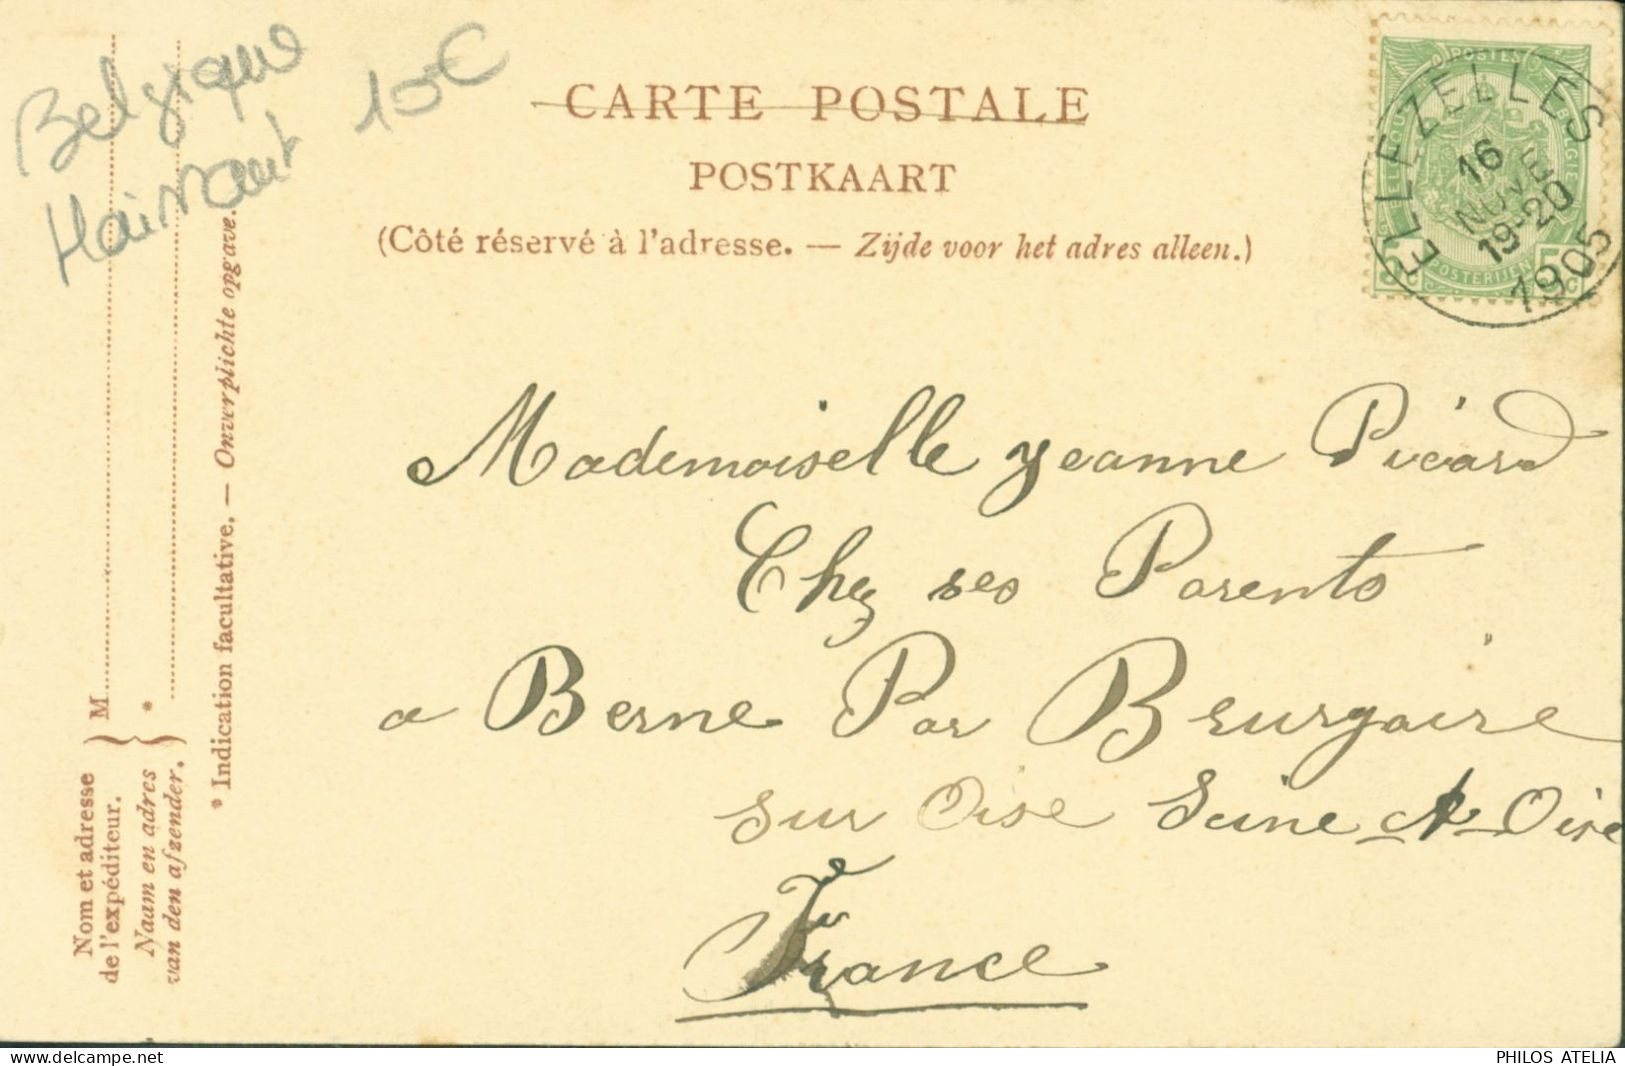 Belgique 10€
Hainaut
CARTE POSTALE
POSTKAART
(Côté réservé à l'adresse. — Zijde voor het adres alleen.)
POSTES
BELGIQUE
BELGIE
POSTERIJEN
5 C
ELLEZELLES
16
NOVE
19-20
1905
Mademoiselle Jeanne Picard
Chez ses Parents
a Berne Par Bruryaire
sur Oise Seine & Oise
France
M
*
Nom et adresse
de l'expéditeur.
Naam en adres
van den afzender.
* Indication facultative. — Onverplichte opgave.
PHILOS ATELIA